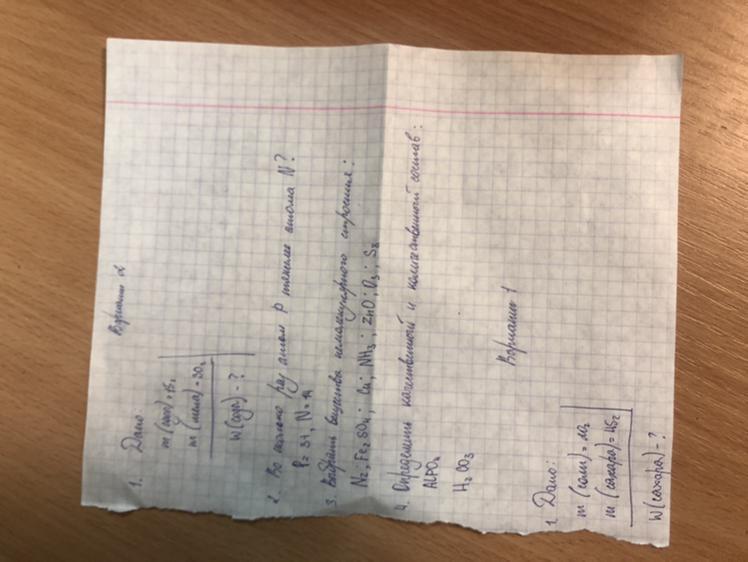 Вариант 2
1. Дано:
m (соли) = 15г
m (мела) = 30г
W (соли) - ?
2. Во сколько раз атом P тяжелее атома N?
P = 31, N = 14
3. Выбрать вещества немолекулярного строения:
N₂; Fe₂SO₄; Cu; NH₃; ZnO; O₃; S₈
4. Определить качественный и количественный состав:
AlPO₄
H₂CO₃
Вариант 1
1. Дано:
m (соли) = 10г
m (сахара) = 45г
W (сахара) - ?